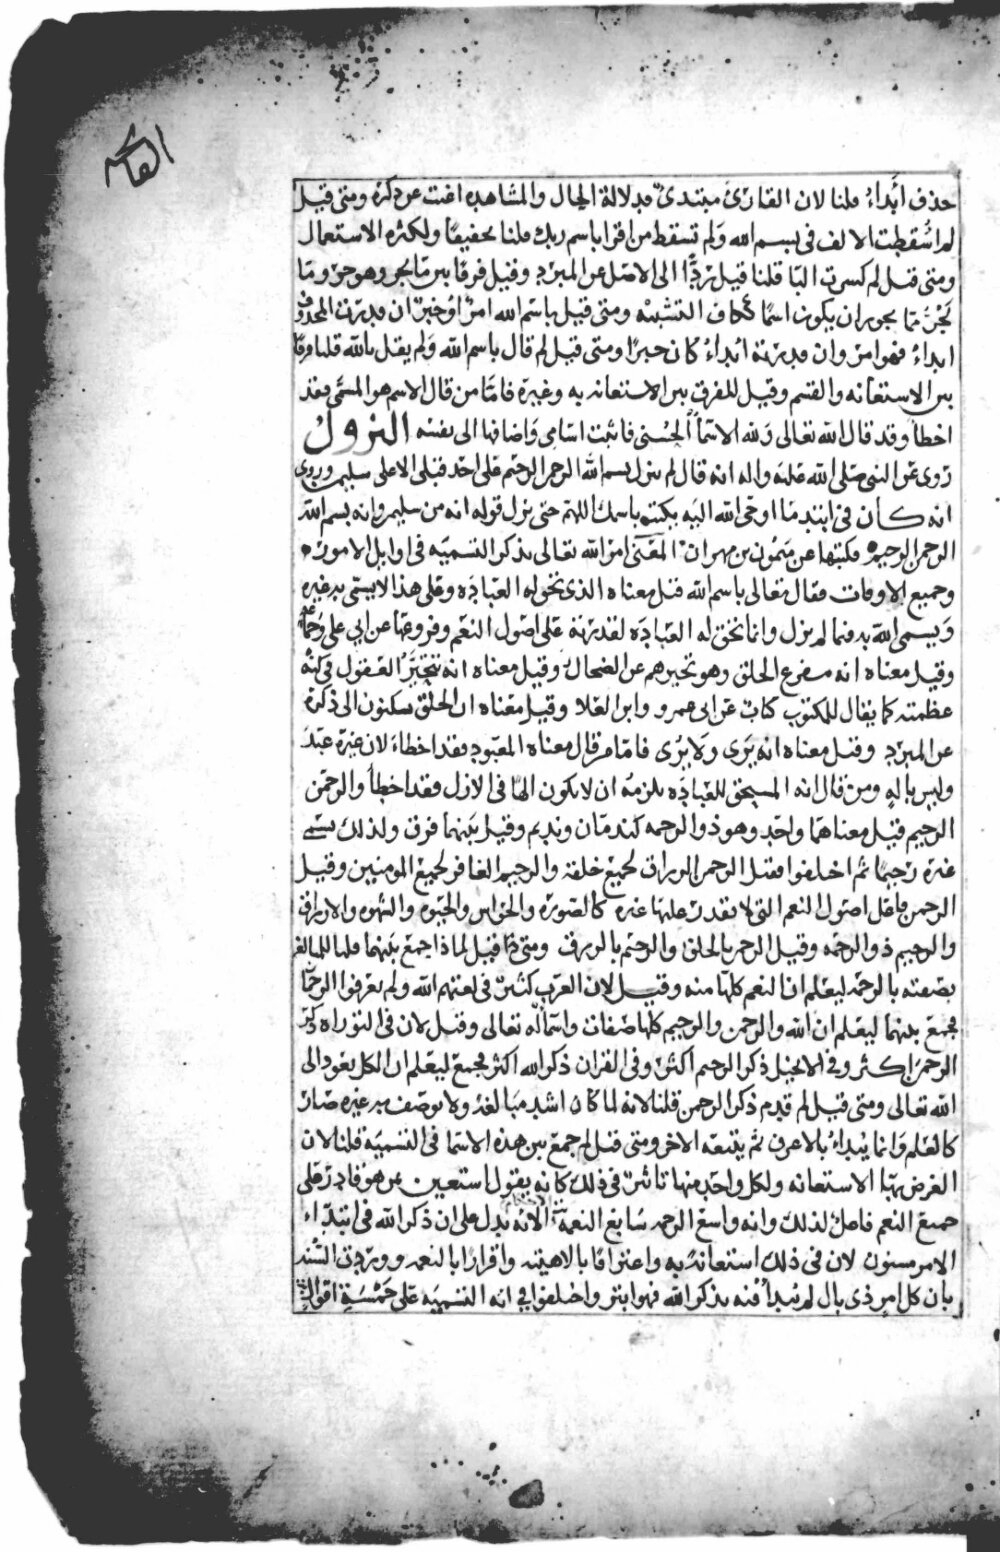 الفاتحه
حذف ابداءُ قلنا لان القارئ مبتدئ فدلالة الحال والمشاهده اغنت عن ذكره ومتى قيل
لم اسقطت الالف فى بسم الله ولم تسقط من اقرا باسم ربك قلنا تخفيفا ولكثره الاستعمال
ومتى قيل لم كسرت البا قلنا قيل ردًّا الى الاصل عن المبرد وقيل فرقا بين ما يجر وهو حرف وما
يجرُّ مما يجوز ان يكون اسمًا ككاف التشبيه ومتى قيل باسم الله امرٌ او خبرٌ ان قدرت المحذوف
ابداءُ فهو امر وان قدرته ابداءُ كان خبرًا ومتى قيل لم قال باسم الله ولم يقل بالله قلنا فرقا
بين الاستعانه والقسم وقيل للفرق بين الاستعانه به وغيره فاما من قال الاسم هو المسمى فقد
اخطأ وقد قال الله تعالى ولله الاسمآ الحسنى فاثبت اسامى واضافها الى نفسه النزولُ
روى عن النبى صلى الله عليه واله انه قال لم ينزل بسم الله الرحمن الرحيم على احد قبلى الا على سليمن وروى
انه كان فى ابتد ما اوحى الله اليه يكتب باسمك اللهم حتى نزل قوله انه من سليمن وانه بسم الله
الرحمن الرحيم فكتبها عن ميمون بن مهران المعنى امر الله تعالى بذكر التسميه فى اوايل الامور
وجميع الاوقات فقال تعالى باسم الله قيل معناه الذى تحق له العباده وعلى هذا لا يسمى به غيره
ويسمى الله به فيما لم يزل وانما تحق له العباده لقدرته على اصول النعم وفروعها عن ابى على وجماعه
وقيل معناه انه مفزع الخلق وهو تحيرهم عن الضحاك وقيل معناه انه تتحيَّر العقول فى كنه
عظمته كما يقال للمكتوب كتاب عن ابى عمرو وابن العلا وقيل معناه ان الخلق يسكنون الى ذكره
عن المبرد وقيل معناه انه يرى ولا يُرى فاما من قال معناه المعبود فقد اخطاء لان غيره عبد
وليس باله ومن قال انه المستحق للعباده يلزمه ان لا يكون الها فى الازل فقد اخطأ والرحمن
الرحيم قيل معناهما واحد وهو ذو الرحمه كندمان ونديم وقيل بينهما فرق ولذلك يسمى
غيره رحيمًا ثم اختلفوا فقيل الرحمن الرزاق لجميع خلقه والرحيم الغافر لجميع المومنين وقيل
الرحمن فاعل اصول النعم التى لا يقدر عليها غيره كالصوره والحواس والحيوه والشهوه والارزاق
والرحيم ذو الرحمه وقيل الرحمن بالخلق والرحيم بالرزق ومتى قيل لماذا جمع بينهما قلنا للمبالغه
بصفته بالرحمه ليعلم ان النعم كلها منه وقيل لان العرب كثر فى لغتهم الله ولم يعرفوا الرحمن
فجمع بينهما ليعلم ان الله والرحمن والرحيم كلها صفات واسمآ لله تعالى وقيل لان فى التوراه ذكر
الرحمن اكثر وفى الانجيل ذكر الرحيم اكثر وفى القران ذكر الله اكثر فجمع ليعلم ان الكل يعود الى
الله تعالى ومتى قيل لم قدم ذكر الرحمن قلنا لانه لما كان اشد مبالغه ولا يوصف به غيره صار
كالعلم وانما يبداءُ بالاعرف ثم يتبعه الاخر ومتى قيل لم جمع بين هذه الاسما فى التسميه قلنا لان
الغرض بها الاستعانه ولكل واحد منها تاثير فى ذلك كانه يقول استعين بمن هو قادر على
جميع النعم فاعلٌ لذلك وانه واسع الرحمه سابغ النعمه لانه يدل على ان ذكر الله فى ابتداء
الامر مسنون لان فى ذلك استعانهً به واعترافًا بالاهيته واقرارًا بالنعمه ووردت السُّنه
بان كل امر ذى بال لم يُبدأ فيه بذكر الله فهو ابتر واختلفوا فى انه التسميه على خمسة اقوال